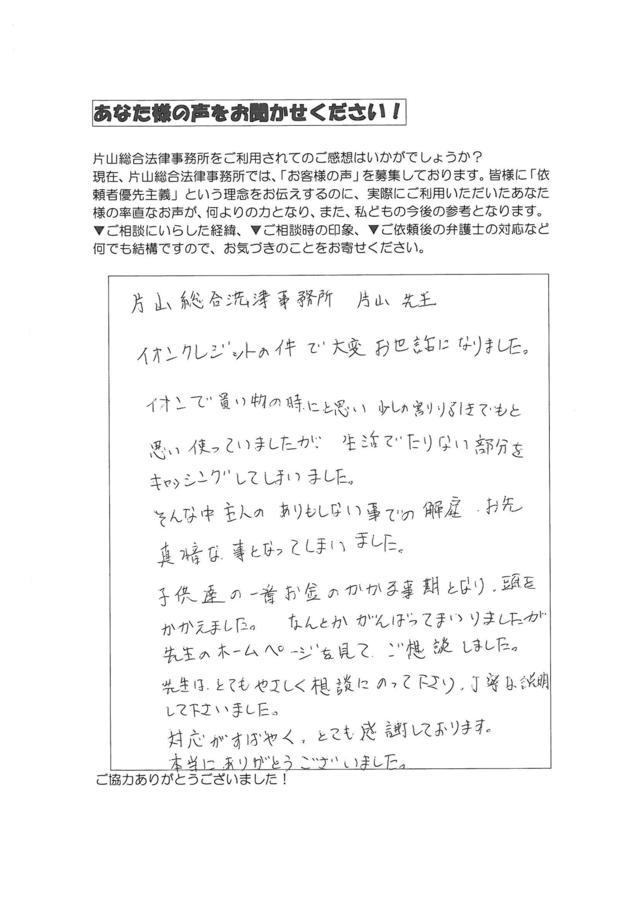 あなた様の声をお聞かせください！
片山総合法律事務所をご利用されてのご感想はいかがでしょうか？
現在、片山総合法律事務所では、「お客様の声」を募集しております。皆様に「依
頼者優先主義」という理念をお伝えするのに、実際にご利用いただいたあなた
様の率直なお声が、何よりの力となり、また、私どもの今後の参考となります。
▼ご相談にいらした経緯、▼ご相談時の印象、▼ご依頼後の弁護士の対応など
何でも結構ですので、お気づきのことをお寄せください。
片山総合法律事務所 片山先生
イオンクレジットの件で大変お世話になりました。
イオンで買い物の時にと思い 少しの割り引きでもと
思い使っていましたが 生活でたりない部分を
キャッシングしてしまいました。
そんな中主人のありもしない事での解庭、お先
真暗な事となってしまいました。
子供達の一番お金のかかる事期となり、頭を
かかえました。 なんとかがんばってまいりましたが
先生のホームページを見て、ご相談しました。
先生は、とてもやさしく相談にのって下さり、丁寧な説明
して下さいました。
対応がすばやく、とても感謝しております。
本当にありがとうございました。
ご協力ありがとうございました！